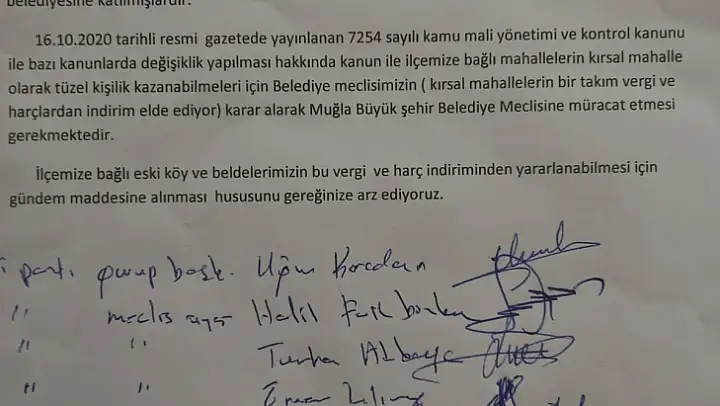 belediyesine katılmışlardır.
16.10.2020 tarihli resmi gazetede yayınlanan 7254 sayılı kamu mali yönetimi ve kontrol kanunu
ile bazı kanunlarda değişiklik yapılması hakkında kanun ile ilçemize bağlı mahallelerin kırsal mahalle
olarak tüzel kişilik kazanabilmeleri için Belediye meclisimizin ( kırsal mahallelerin bir takım vergi ve
harçlardan indirim elde ediyor) karar alarak Muğla Büyük şehir Belediye Meclisine müracat etmesi
gerekmektedir.
İlçemize bağlı eski köy ve beldelerimizin bu vergi ve harç indiriminden yararlanabilmesi için
gündem maddesine alınması hususunu gereğinize arz ediyoruz.
parti gurup başk. Uğur
" meclis üyesi Halil
" "
" "